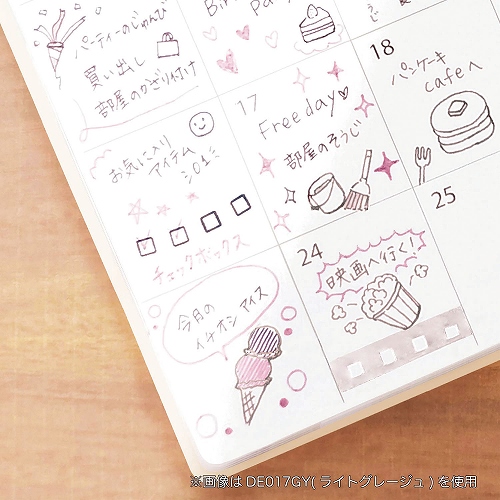 パーティーのじゅんび
買い出し
部屋のかざり付け
お気に入り
アイテム
チェックボックス
今月の
イチオシ アイス
17
Free day
部屋のそうじ
18
パンケーキ
cafeへ
24
映画へ行く!
25
※画像はDE017GY(ライトグレージュ)を使用